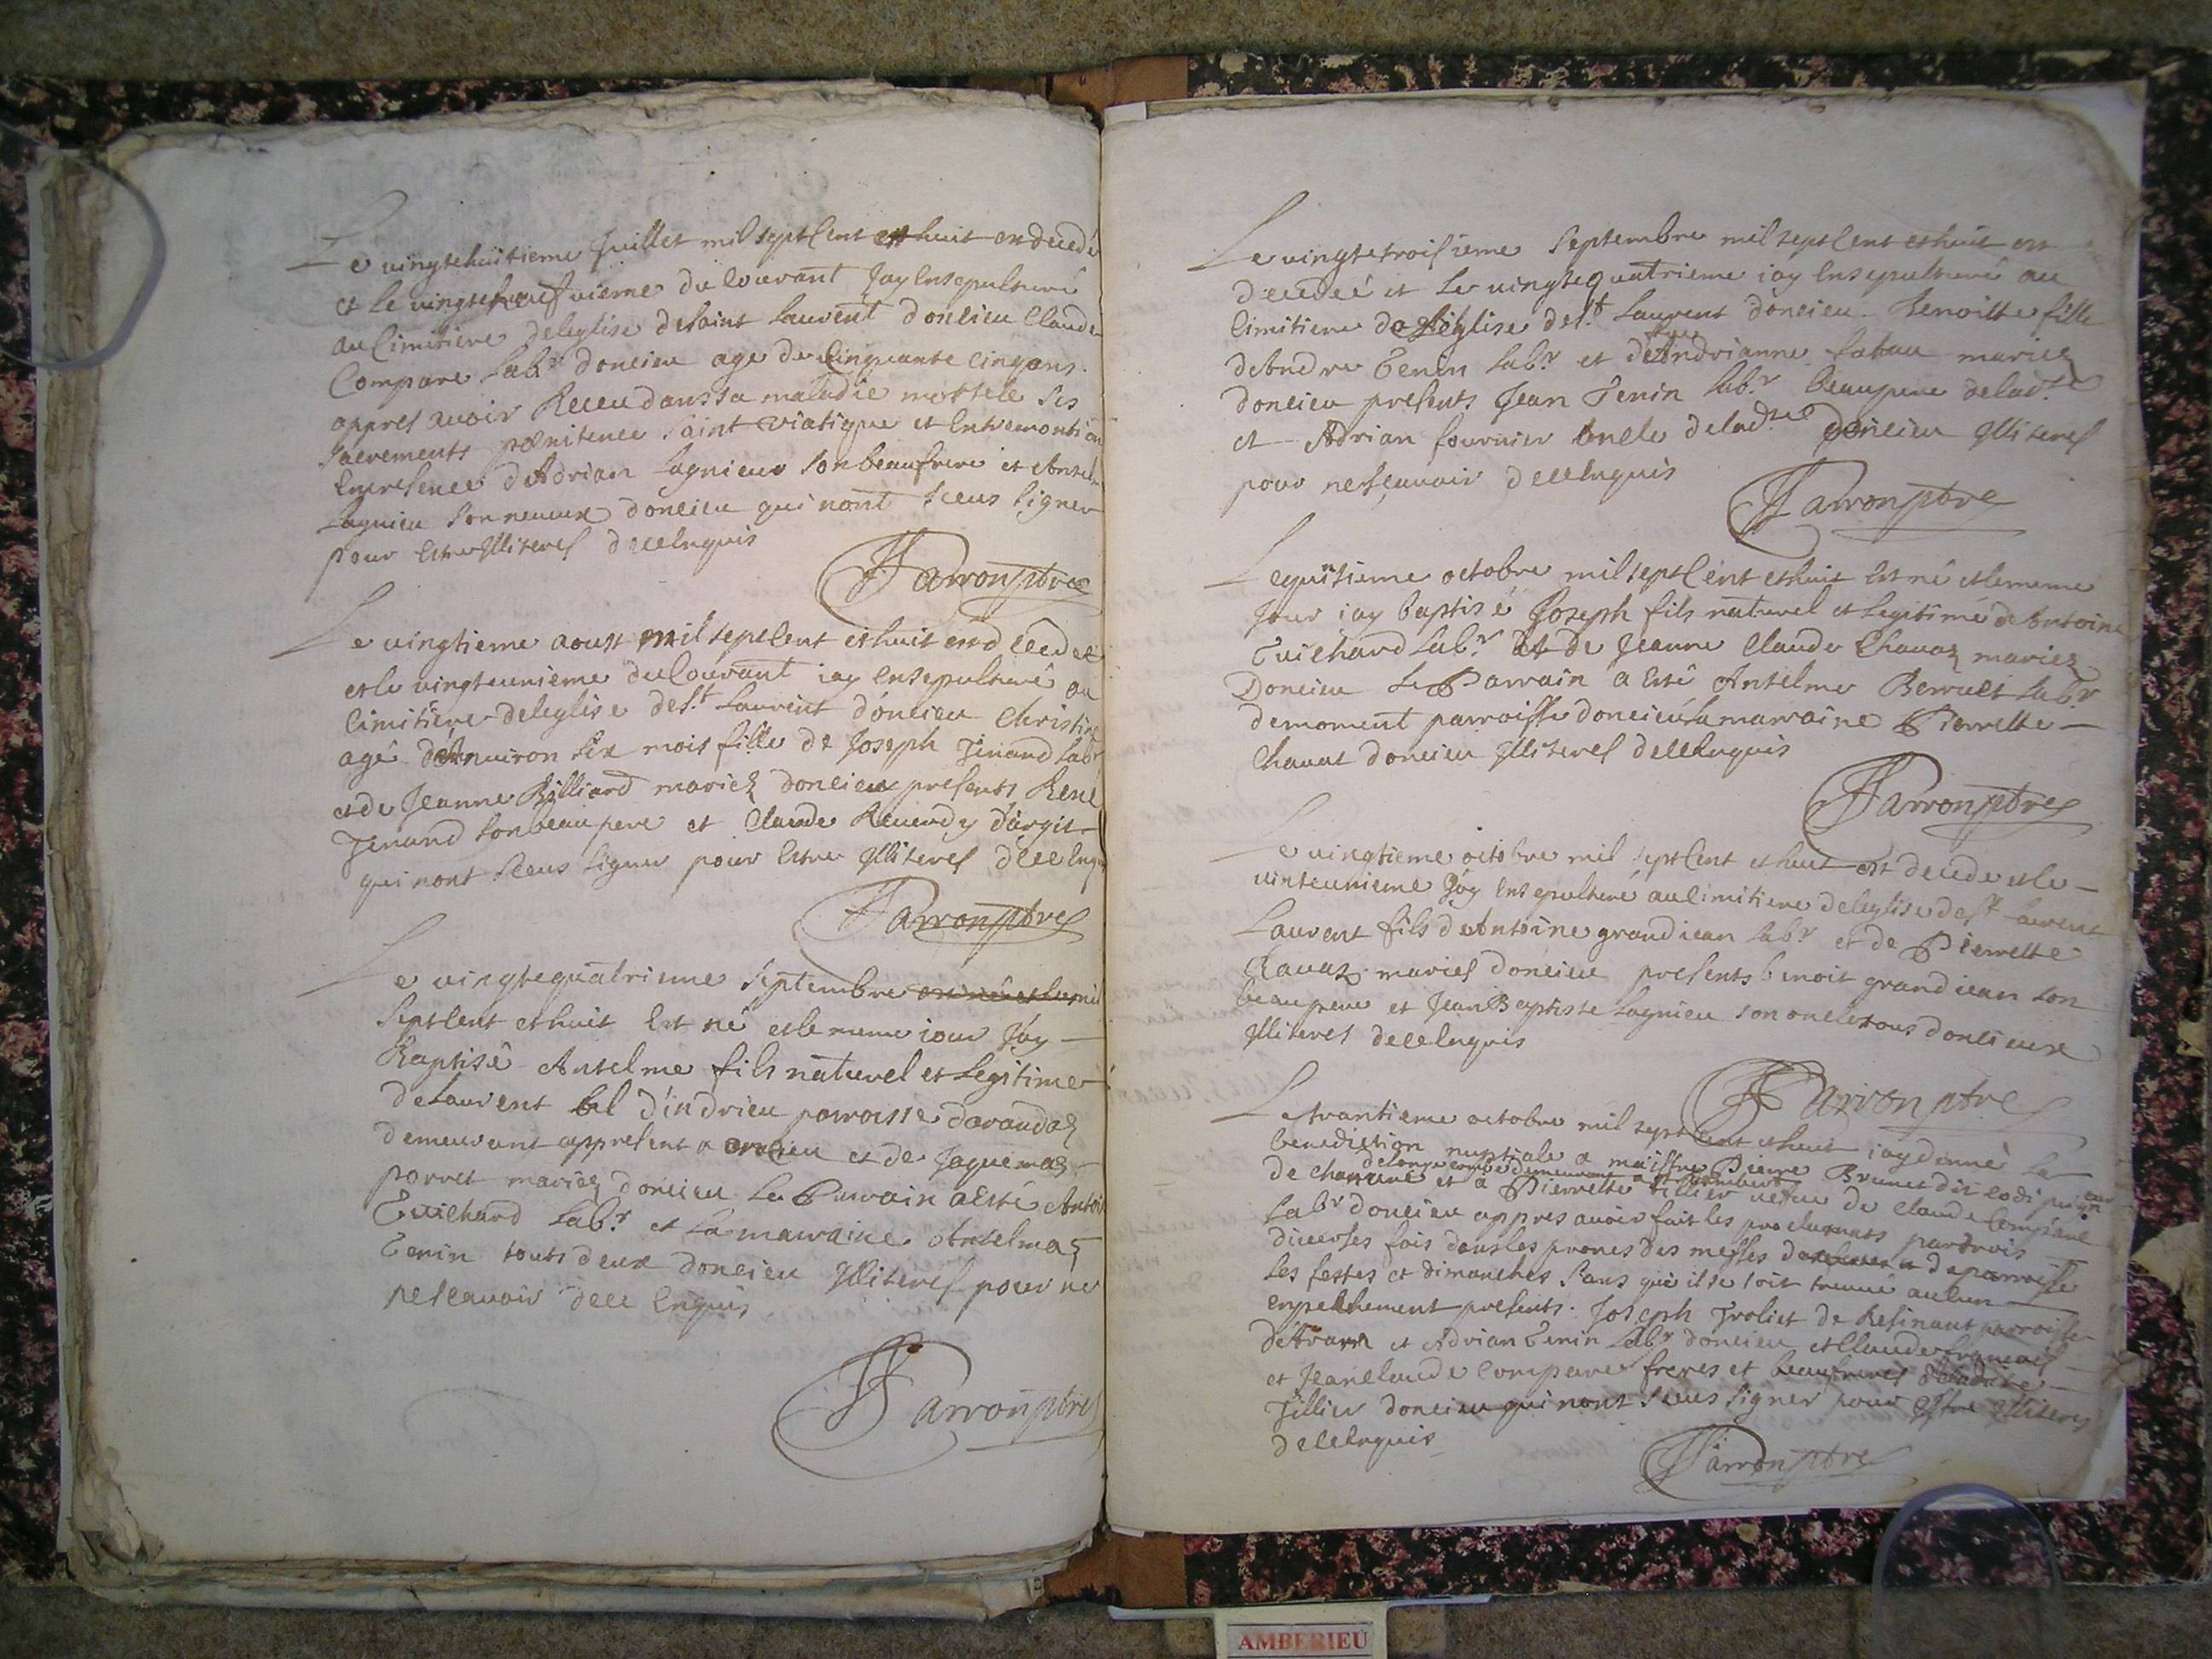 Le vingtehuitieme Juillet mil sept Cent et huit est decedé
et le vingteneufvieme du Courant Jay Ensepulturé
au Cimitiere de leglise de saint Laurent doncieu Claude
Compare Labr doncieu age de Cinquante Cinq ans
appres avoir Receu dans sa maladie mortele Ses
sacrements pœnitence saint viatique et
En presence d'Adrian Lagnieu son beaufrere et
Lagnieu son neueux doncieu qui nont sceus signer
pour Estre Illiteres de ce Enquis
Jarron ptre
Le vingtieme aoust mil sept Cent et huit est decedee
et le vingteunieme du Courant iay Ensepulturé au
Cimitiere de leglise de st Laurent doncieu Christine
agé d'Environ six mois fille de Joseph Tenand Labr
et de Jeanne Billiard mariez doncieu presents René
Tenand son beaupere et Claude Reverdy
qui nont sceus signer pour Estre Illiteres de ce Enq
Jarron ptre
Le vingtequatrieme Septembre mil
Sept Cent et huit Est né et le meme iour Jay
Baptisé Antelme fils naturel et Legitime
de Laurent bel d'indrieu parroisse darandaz
demeurant appresent a oncieu et de Jaquemaz
porret mariez doncieu Le Parrain a Esté Antoi
Guichard Labr et La marraine Antelmaz
Tenin touts deux doncieu Illiteres pour ne
scavoir de ce Enquis
Jarron ptre
Le vingtetroisieme Septembre mil sept Cent et huit est
decedeé et le vingtequatrieme iay Ensepulturé au
Cimitiere de Leglise de st Laurent doncieu Benoitte fille
de Andre Tenin Labr et de Andrianne mariez
doncieu presents Jean Tenin Labr beaupere de lad.te
et Adrian fournier oncle de lad.te doncieu Illiteres
pour ne scavoir de ce Enquis
Jarron ptre
Le octobre mil sept Cent et huit Est né et le meme
Jour iay baptisé Joseph fils naturel et Legitime de Antoine
Guichard Labr et de Jeanne Claude Chavaz mariez
Doncieu Le Parrain a Esté Antelme Labr
de moment parroisse doncieu La marraine Pierrette
Chavat doncieu Illiteres de ce Enquis
Jarron ptre
Le vingtieme octobre mil sept Cent et huit est decede et le
vinteunieme Jay Ensepulturé au Cimitiere de leglise de st Laurent
Laurent fils de Antoine grandiean Labr et de Pierrette
Chavaz maries doncieu presents benoit grandiean son
beaupere et Jean Baptiste Lagnieu son oncle tous doncieux
Illiteres de ce Enquis
Jarron ptre
Le trantieme octobre mil sept Cent et huit iay donné La
benediction nuptiale a maistre Pierre Brunet dit
de et a Pierrette Tillier vefue de Claude Compare
Labr doncieu appres avoir fait les par trois
diverses fois dans les prones des messes de parroisse
les festes et dimanches sans que il se soit treuué aucun
enpechement presents Joseph Troliet de Resinant parroisse
d'Aranc et Adrian Tenin Labr doncieu et Claude francois
et Jean Claude Compare freres et beaufreres de
Tillier doncieu qui nont sceus signer pour Estre Illiteres
de ce Enquis
Jarron ptre
AMBERIEU